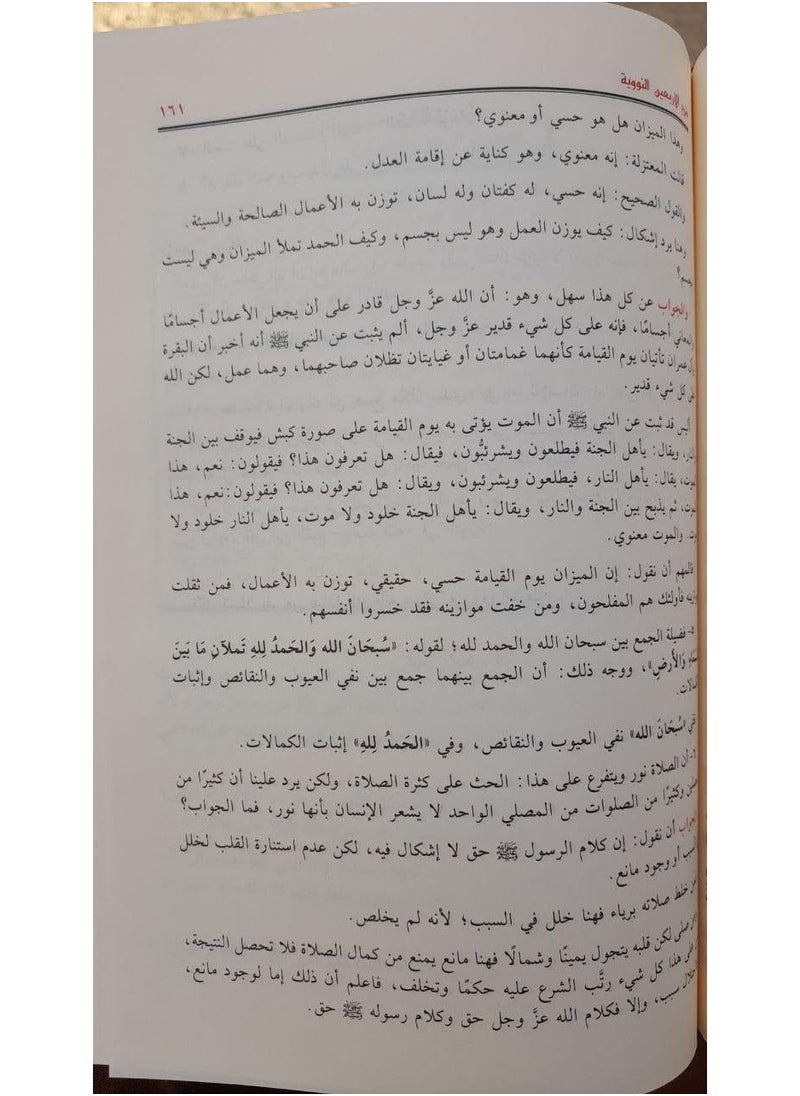 شرح الأربعين النووية
١٦١
وهذا الميزان هل هو حسي أو معنوي؟
قالت المعتزلة: إنه معنوي، وهو كناية عن إقامة العدل.
والقول الصحيح: إنه حسي، له كفتان وله لسان، توزن به الأعمال الصالحة والسيئة.
وهنا يرد إشكال: كيف يوزن العمل وهو ليس بجسم، وكيف الحمد تملأ الميزان وهي ليست
بجسم؟
والجواب عن كل هذا سهل، وهو: أن الله عزَّ وجل قادر على أن يجعل الأعمال أجسامًا
والمعاني أجسامًا، فإنه على كل شيء قدير عزَّ وجل، ألم يثبت عن النبي ﷺ أنه أخبر أن البقرة
وآل عمران تأتيان يوم القيامة كأنهما غمامتان أو غيايتان تظلان صاحبهما، وهما عمل، لكن الله
على كل شيء قدير.
أليس قد ثبت عن النبي ﷺ أن الموت يؤتى به يوم القيامة على صورة كبش فيوقف بين الجنة
والنار، ويقال: يأهل الجنة فيطلعون ويشرئبُّون، فيقال: هل تعرفون هذا؟ فيقولون: نعم، هذا
الموت، يقال: يأهل النار، فيطلعون ويشرئبون، ويقال: هل تعرفون هذا؟ فيقولون:نعم، هذا
الموت، ثم يذبح بين الجنة والنار، ويقال: يأهل الجنة خلود ولا موت، يأهل النار خلود ولا
موت. والموت معنوي.
فالمهم أن نقول: إن الميزان يوم القيامة حسي، حقيقي، توزن به الأعمال، فمن ثقلت
موازينه فأولئك هم المفلحون، ومن خفت موازينه فقد خسروا أنفسهم.
فضيلة الجمع بين سبحان الله والحمد لله؛ لقوله: «سُبحَانَ الله وَالحَمدُ لِلهِ تَملآنِ مَا بَينَ
السَّمَاءِ وَالأَرضِ»، ووجه ذلك: أن الجمع بينهما جمع بين نفي العيوب والنقائص وإثبات
الكمالات.
ففي «سُبحَانَ الله» نفي العيوب والنقائص، وفي «الحَمدُ لِلهِ» إثبات الكمالات.
أن الصلاة نور ويتفرع على هذا: الحث على كثرة الصلاة، ولكن يرد علينا أن كثيرًا من
المصلين وكثيرًا من الصلوات من المصلي الواحد لا يشعر الإنسان بأنها نور، فما الجواب؟
الجواب أن نقول: إن كلام الرسول ﷺ حق لا إشكال فيه، لكن عدم استنارة القلب لخلل
السبب أو وجود مانع.
خلط صلاته برياء فهنا خلل في السبب؛ لأنه لم يخلص.
صلى لكن قلبه يتجول يمينًا وشمالًا فهنا مانع يمنع من كمال الصلاة فلا تحصل النتيجة،
على هذا كل شيء رتَّب الشرع عليه حكمًا وتخلف، فاعلم أن ذلك إما لوجود مانع،
اختلال سبب، وإلا فكلام الله عزَّ وجل حق وكلام رسوله ﷺ حق.